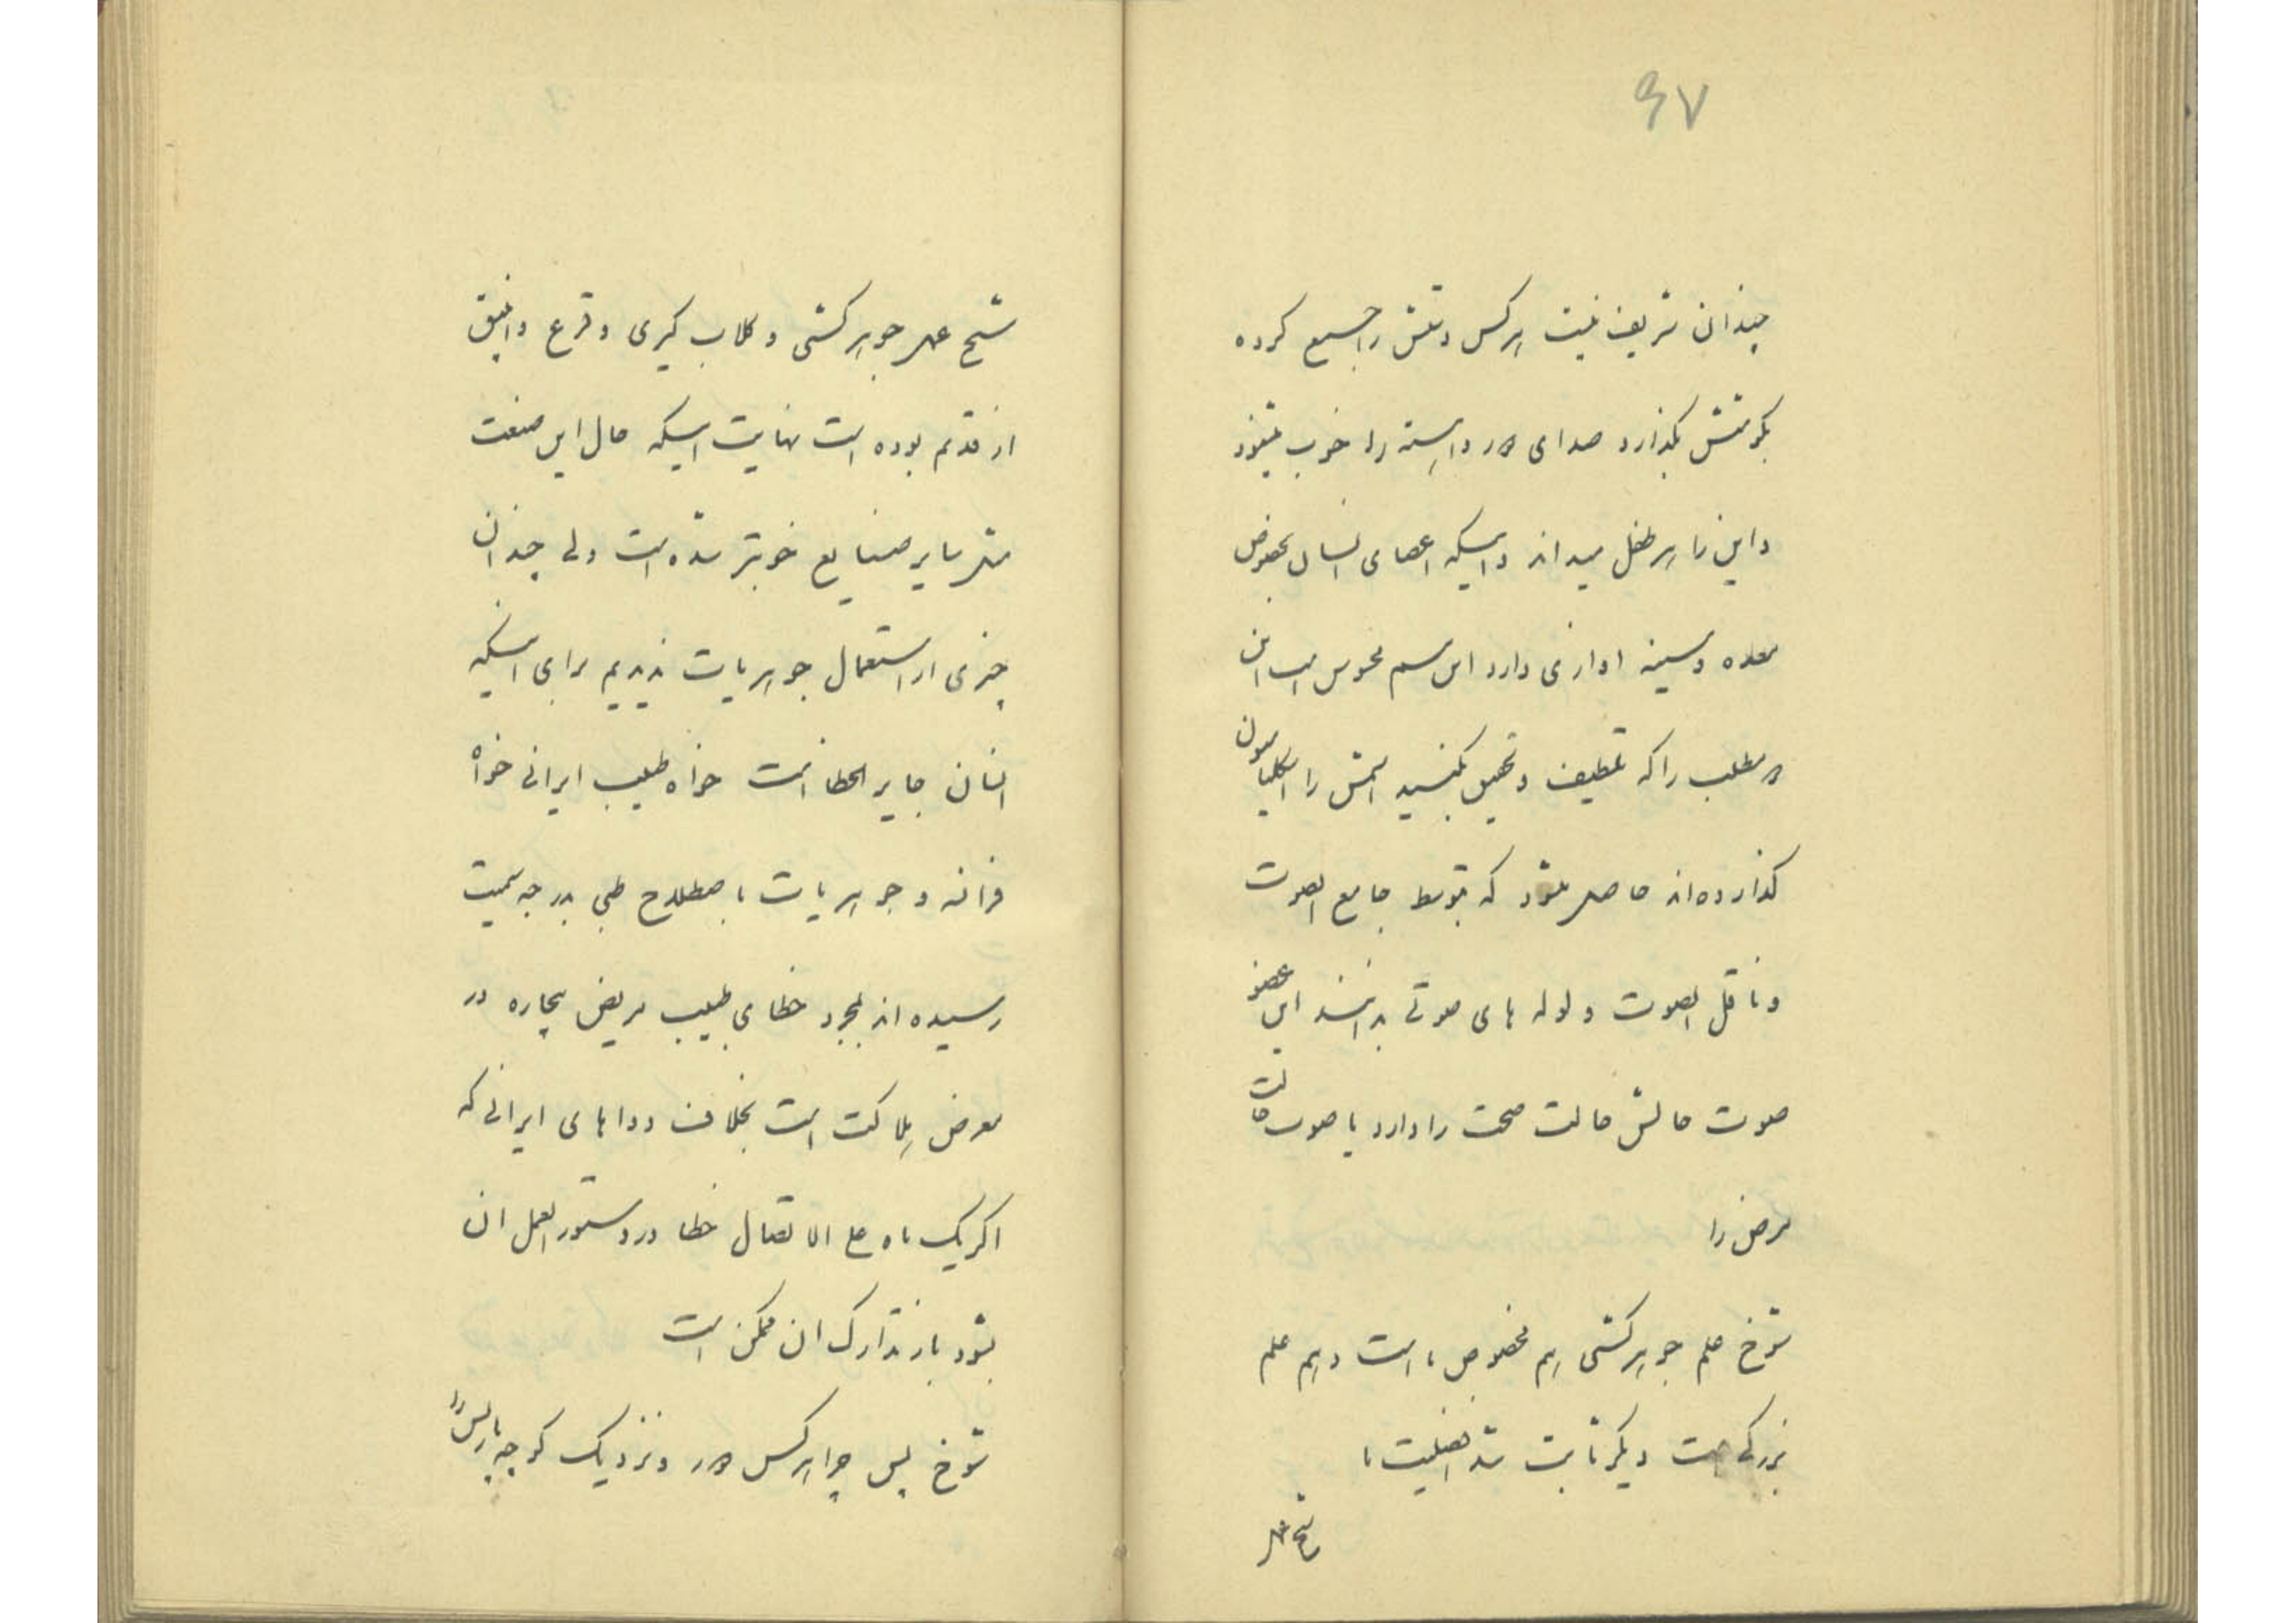 ۹۷
چندان شریف نیست هرکس دستش را جمع کرده
بگوشش بگذارد صدای دور و آهسته را خوب میشنود
و این را هر طفل میداند و اینکه اعضای انسان بخصوص
معده و سینه اوازی دارد این هم محسوس است این
مطلب را که تلطیف و تحقیق بکنید اسمش را
گذارده‌اند حاصل میشود که بتوسط جامع الصوت
و ناقل الصوت و لوله های صوتی بدانند این عضو
صوت حالش حالت صحت را دارد یا صوت حالت
مرض را
شوخ علم جوهرکشی هم مخصوص ما است و هم علم
بزرگی است دیگر ثابت شد افضلیت ما
شیخ عمل
شیخ عمل جوهرکشی و گلاب گیری و قرع و انبیق
از قدیم بوده است نهایت اینکه حال این صنعت
مثل سایر صنایع خوبتر شده است ولی چندان
چیزی از استعمال جوهریات ندیدیم برای اینکه
انسان جایز الخطا است خواه طبیب ایرانی خواه
فرانسه و جوهریات باصطلاح طبی بدرجه سمیت
رسیده اند بمجرد خطای طبیب مریض بیچاره در
معرض هلاکت است بخلاف دواهای ایرانی که
اگر یک ماه علی الاتصال خطا در دستور العمل آن
بشود باز تدارک آن ممکن است
شوخ پس چرا هرکس دور و نزدیک کوچه پاریس را